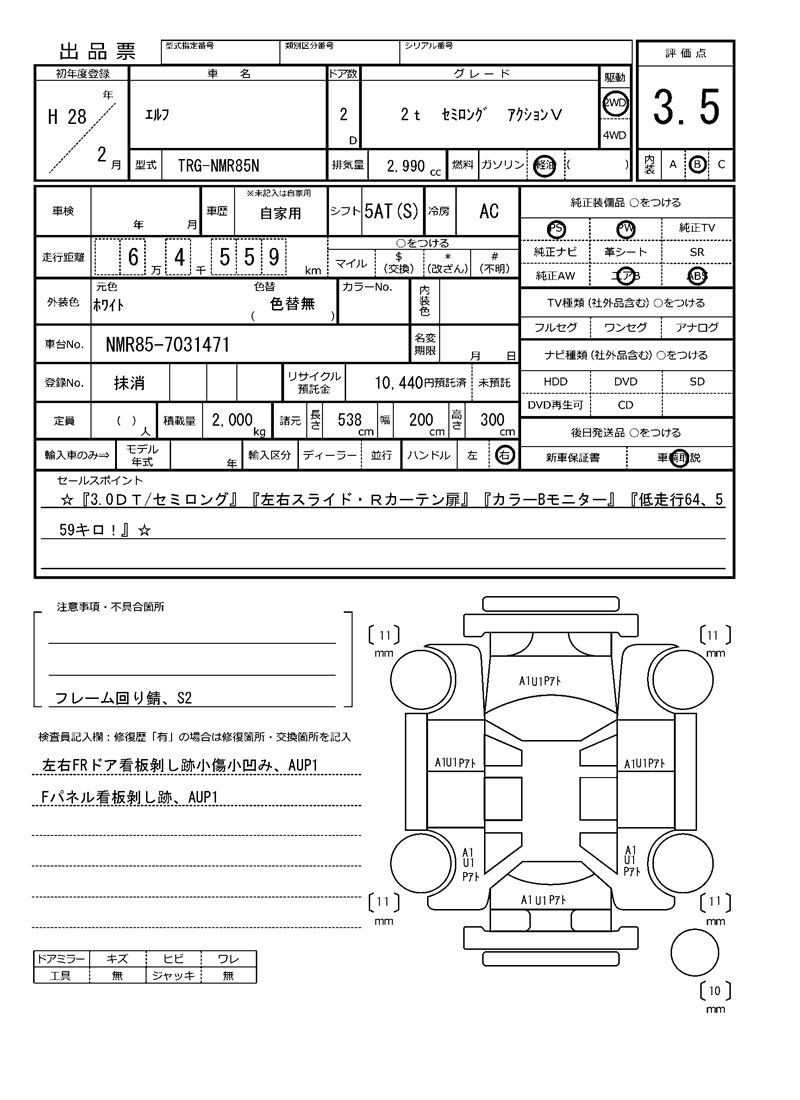 出品票
型式指定番号 類別区分番号 シリアル番号
評価点
3.5
内装 A B C
初年度登録 車名 ドア数 グレード 駆動
H 28 年 2 月
エルフ
2 D
2t セミロング アクションV
2WD
4WD
型式 TRG-NMR85N 排気量 2,990 cc 燃料 ガソリン 軽油 ( )
車検 年 月 車歴 ※未記入は自家用 自家用 シフト 5AT(S) 冷房 AC
走行距離 6 万 4 千 5 5 9 km
○をつける
マイル $(交換) *(改ざん) #(不明)
外装色 元色 ホワイト 色替 ( 色替無 ) カラーNo. 内装色
車台No. NMR85-7031471 名変期限 月 日
登録No. 抹消 リサイクル預託金 10,440円預託済 未預託
定員 ( ) 人 積載量 2,000 kg 諸元 長さ 538 cm 幅 200 cm 高さ 300 cm
輸入車のみ⇒ モデル年式 年 輸入区分 ディーラー 並行 ハンドル 左 右
純正装備品 ○をつける
PS PW 純正TV
純正ナビ 革シート SR
純正AW エアB ABS
TV種類(社外品含む) ○をつける
フルセグ ワンセグ アナログ
ナビ種類(社外品含む) ○をつける
HDD DVD SD
DVD再生可 CD
後日発送品 ○をつける
新車保証書 車輌取説
セールスポイント
☆『3.0DT/セミロング』『左右スライド・Rカーテン扉』『カラーBモニター』『低走行64、5
59キロ!』☆
注意事項・不具合箇所
フレーム回り錆、S2
検査員記入欄:修復歴「有」の場合は修復箇所・交換箇所を記入
左右FRドア看板剝し跡小傷小凹み、AUP1
Fパネル看板剝し跡、AUP1
ドアミラー キズ ヒビ ワレ
工具 無 ジャッキ 無
〔11〕 mm
〔11〕 mm
A1U1Pアト
A1U1Pアト
A1U1Pアト
A1
U1
Pアト
A1
U1
Pアト
A1U1Pアト
〔11〕 mm
〔11〕 mm
〔10〕 mm